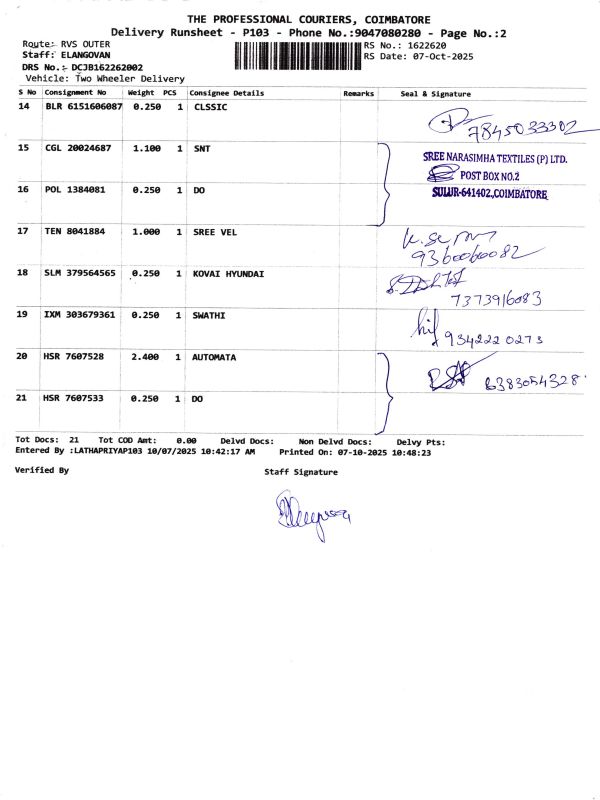 THE PROFESSIONAL COURIERS, COIMBATORE
Delivery Runsheet - P103 - Phone No.:9047080280 - Page No.:2
Route: RVS OUTER RS No.: 1622620
Staff: ELANGOVAN RS Date: 07-Oct-2025
DRS No.: DCJB162262002
Vehicle: Two Wheeler Delivery
S No Consignment No Weight PCS Consignee Details Remarks Seal & Signature
14 BLR 6151606087 0.250 1 CLSSIC
7845033302
15 CGL 20024687 1.100 1 SNT
SREE NARASIMHA TEXTILES (P) LTD.
POST BOX NO.2
16 POL 1384081 0.250 1 DO SULUR-641402, COIMBATORE
17 TEN 8041884 1.000 1 SREE VEL
9360060082
18 SLM 379564565 0.250 1 KOVAI HYUNDAI
7373916083
19 IXM 303679361 0.250 1 SWATHI
9342220273
20 HSR 7607528 2.400 1 AUTOMATA
6383054328
21 HSR 7607533 0.250 1 DO
Tot Docs: 21 Tot COD Amt: 0.00 Delvd Docs: Non Delvd Docs: Delvy Pts:
Entered By :LATHAPRIYAP103 10/07/2025 10:42:17 AM Printed On: 07-10-2025 10:48:23
Verified By Staff Signature